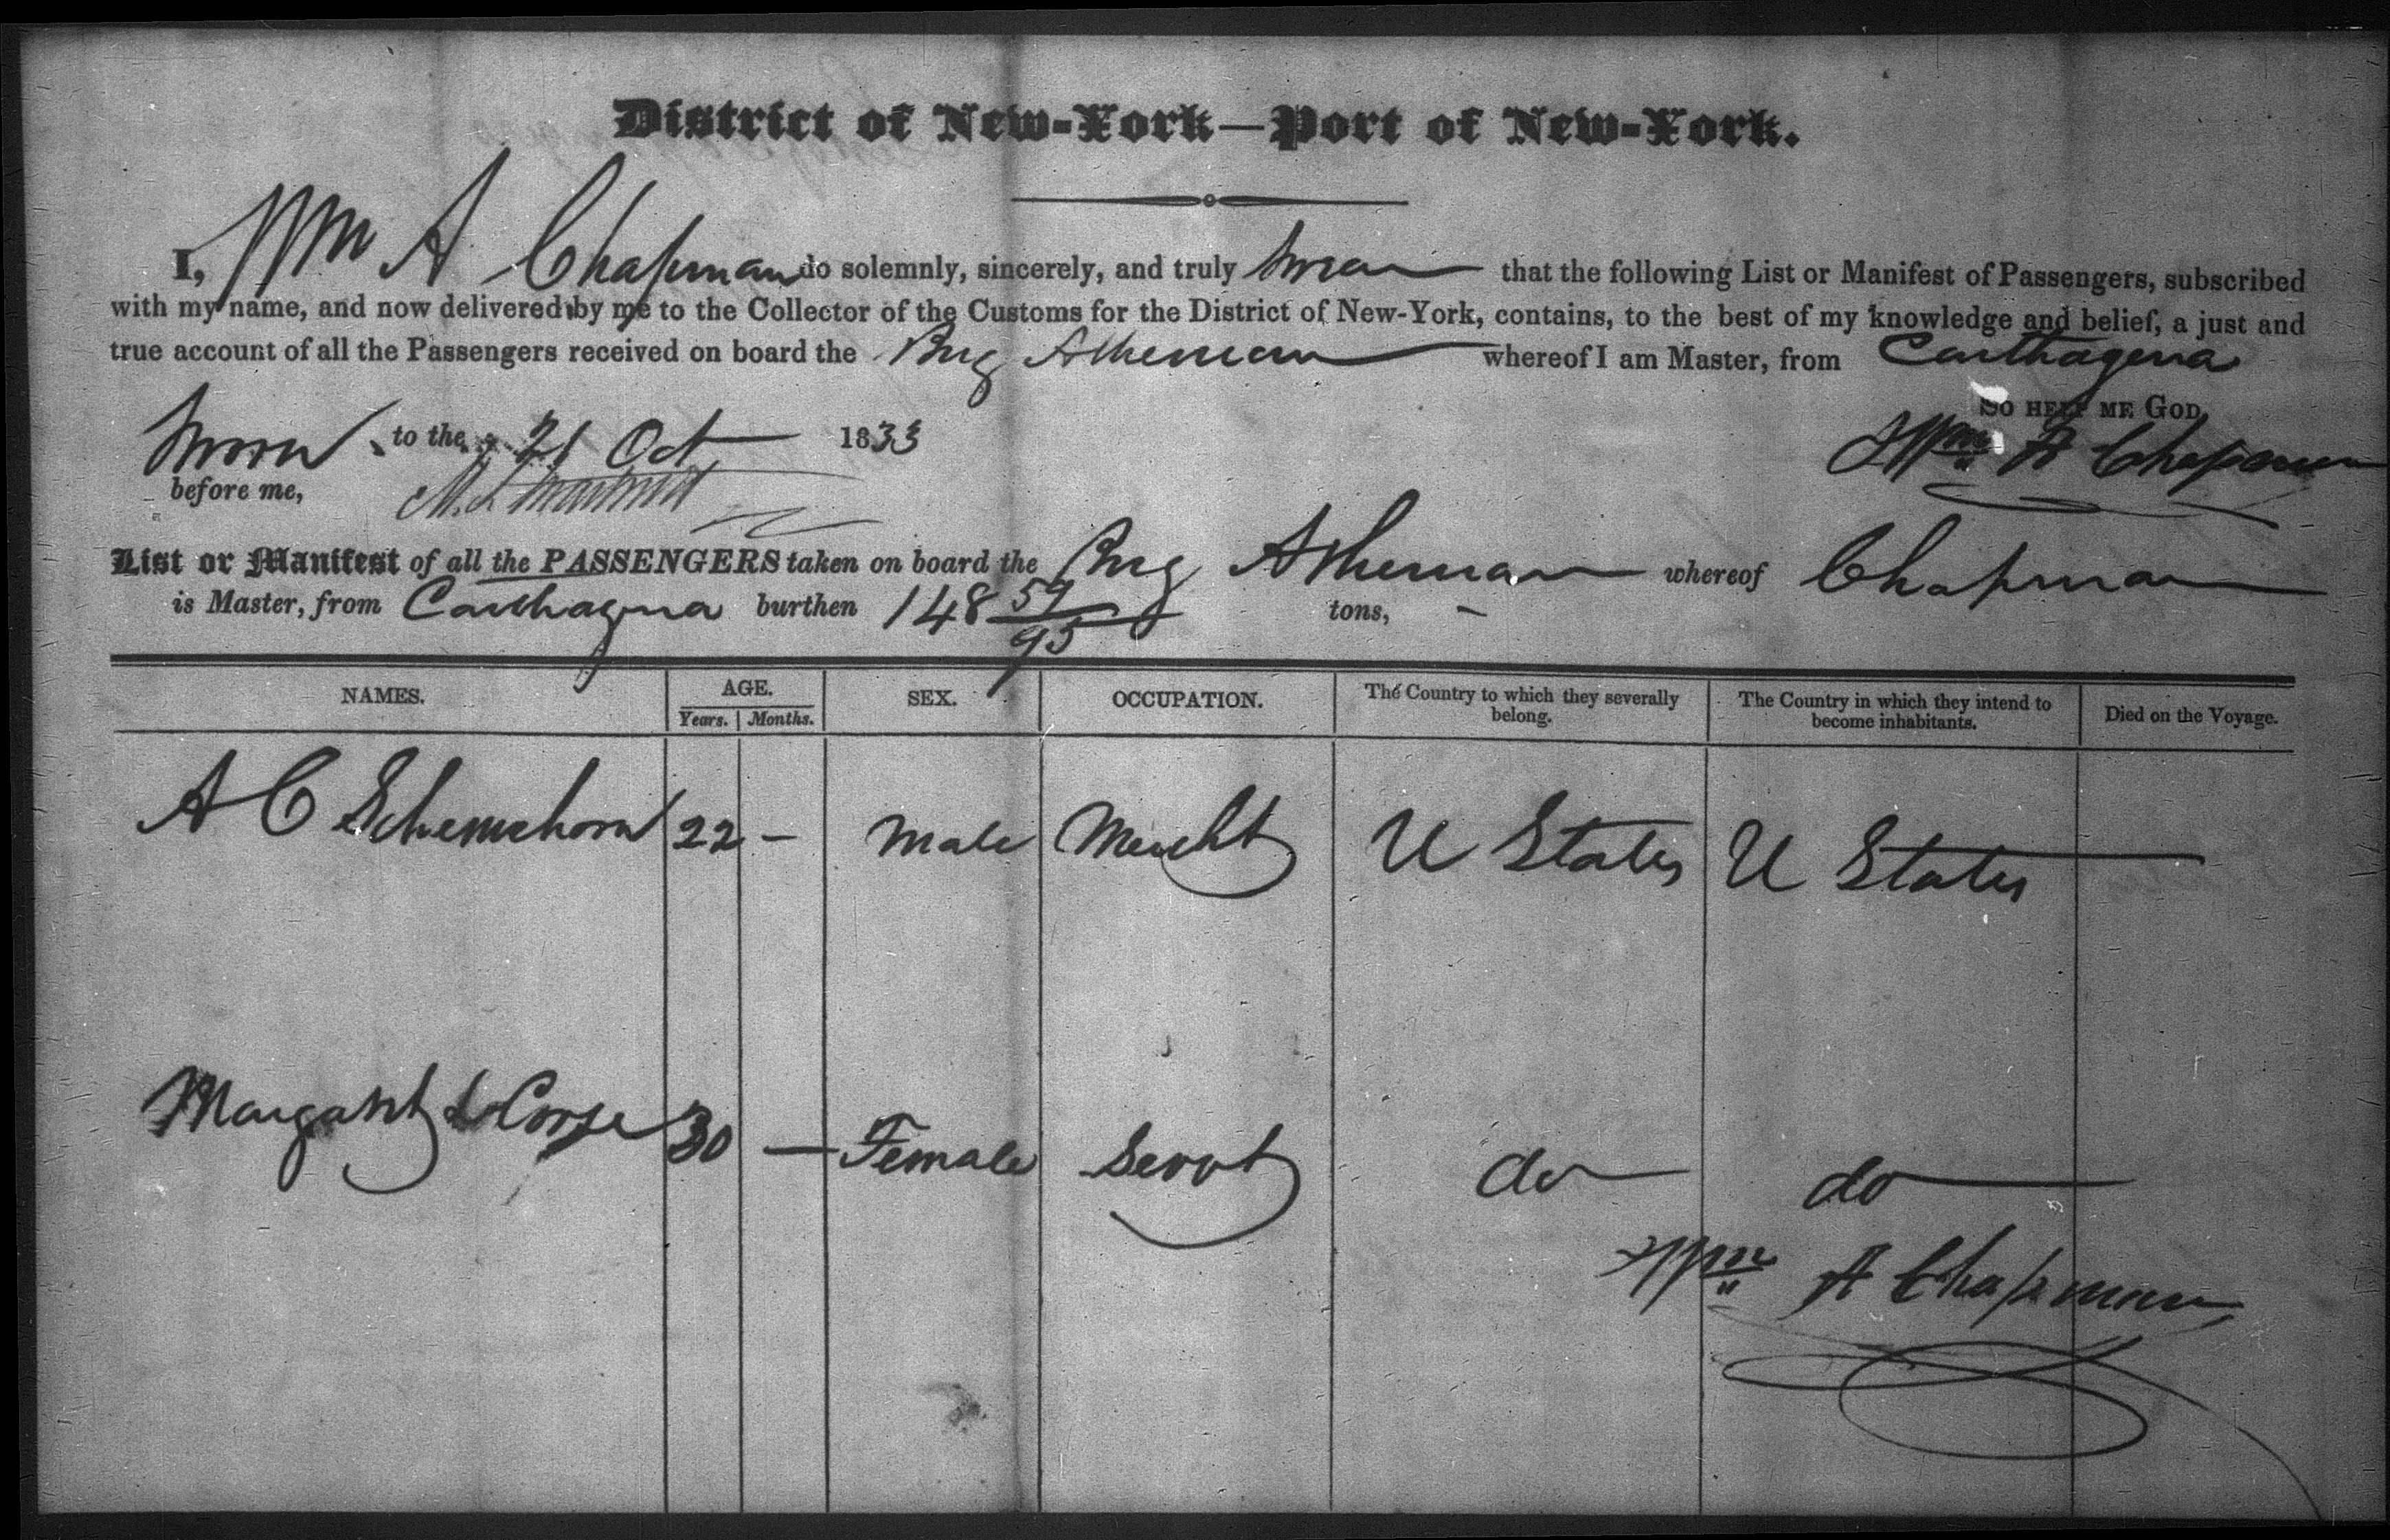 District of New-York—Port of New-York.
I, Wm A Chapman do solemnly, sincerely, and truly swear that the following List or Manifest of Passengers, subscribed
with my name, and now delivered by me to the Collector of the Customs for the District of New-York, contains, to the best of my knowledge and belief, a just and
true account of all the Passengers received on board the Brig Athenian whereof I am Master, from Carthagena
So help me God,
Sworn to the 21 Oct 1833
Wm A Chapman
before me,
List or Manifest of all the PASSENGERS taken on board the Brig Athenian whereof Chapman
is Master, from Carthagena burthen 148 59/95 tons, –
NAMES. AGE. SEX. OCCUPATION. The Country to which they severally belong. The Country in which they intend to become inhabitants. Died on the Voyage.
Years. Months.
A C Schermehorn 22 – Male Mercht U States U States —
Margaret Corse 30 — Female Servt do do —
Wm A Chapman